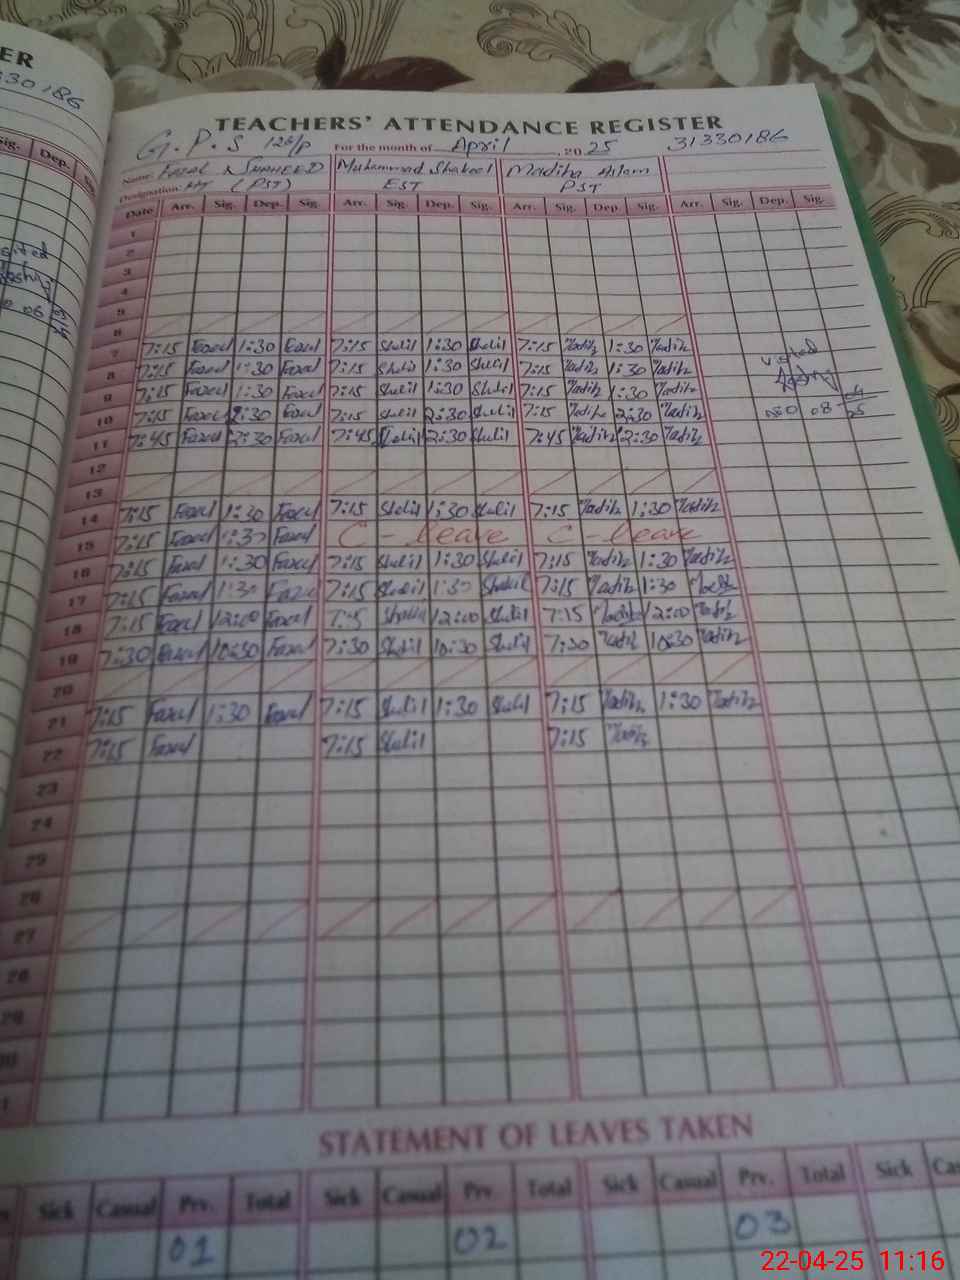 ER
30186
TEACHERS' ATTENDANCE REGISTER
G.P.S 126/P For the month of April 2025 31330186
Name: FAZAL Muhammad Shakeel Madiha Aslam
Designation: HT (PST) EST PST
Date Arr. Sig. Dep. Sig. Arr. Sig. Dep. Sig. Arr. Sig. Dep. Sig. Arr. Sig. Dep. Sig.
1
2
3
4
5
6
7 7:15 Fazal 1:30 Fazal 7:15 Shakil 1:30 Shakil 7:15 Madiha 1:30 Madiha
8 7:15 Fazal 1:30 Fazal 7:15 Shakil 1:30 Shakil 7:15 Madiha 1:30 Madiha visited
9 7:15 Fazal 1:30 Fazal 7:15 Shakil 1:30 Shakil 7:15 Madiha 1:30 Madiha
10 7:15 Fazal 2:30 Fazal 7:15 Shakil 2:30 Shakil 7:15 Madiha 2:30 Madiha 08 04 25
11 7:45 Fazal 2:30 Fazal 7:45 Shakil 2:30 Shakil 7:45 Madiha 2:30 Madiha
12
13
14 7:15 Fazal 1:30 Fazal 7:15 Shakil 1:30 Shakil 7:15 Madiha 1:30 Madiha
15 7:15 Fazal 1:30 Fazal C - leave C - leave
16 7:15 Fazal 1:30 Fazal 7:15 Shakil 1:30 Shakil 7:15 Madiha 1:30 Madiha
17 7:15 Fazal 1:30 Fazal 7:15 Shakil 1:30 Shakil 7:15 Madiha 1:30 Madiha
18 7:15 Fazal 12:00 Fazal 7:15 Shakil 12:00 Shakil 7:15 Madiha 12:00 Madiha
19 7:30 Fazal 10:30 Fazal 7:30 Shakil 10:30 Shakil 7:30 Madiha 10:30 Madiha
20
21 7:15 Fazal 1:30 Fazal 7:15 Shakil 1:30 Shakil 7:15 Madiha 1:30 Madiha
22 7:15 Fazal 7:15 Shakil 7:15 Madiha
23
24
25
26
27
28
29
30
STATEMENT OF LEAVES TAKEN
Sick Casual Prv. Total Sick Casual Prv. Total Sick Casual Prv. Total Sick
01 02 03
22-04-25 11:16